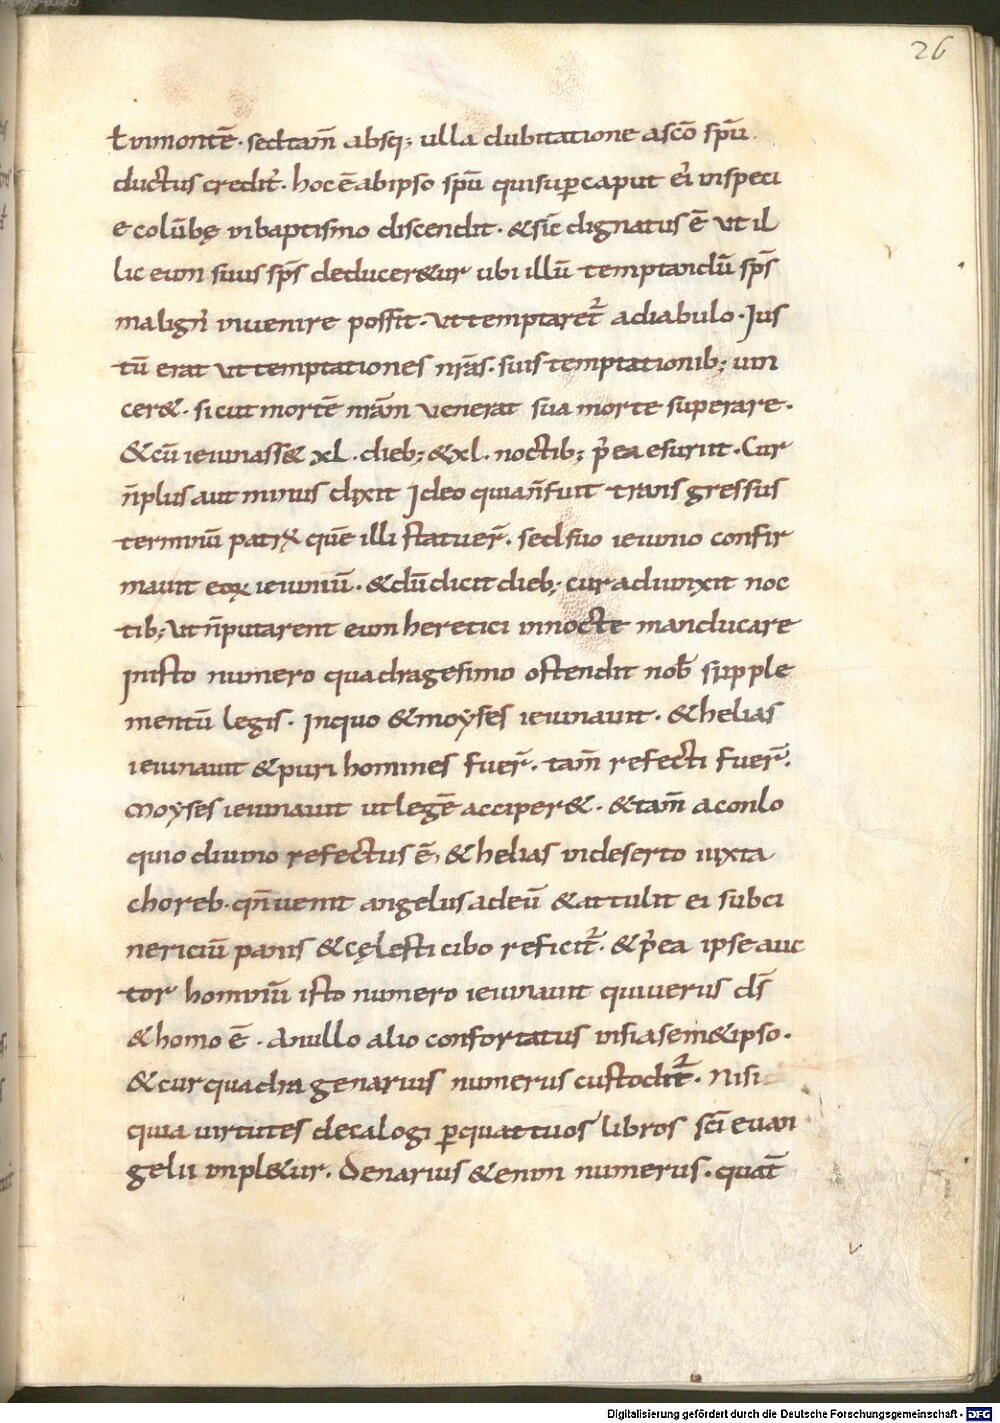 26
ł inmontē · sedtam̄ absq; ulla dubitatione ascō sp̄u
ductus credit̃ · hoc ē abipso sp̄u quisup̱ caput ei inspeci
e colūbę inbaptismo discendit · & sic̄ dignatus ē ut il
lic eum suus sp̄s deducer&ur ubi illū temptandū sp̄s
malign᾿ inuenire possit · ut temptaret᷑ adiabulo · Jus
tū erat ut temptationes nr̄as · suis temptationib; uin
cer& · sicut mortē nr̄am uenerat sua morte superare ·
& cū ieiunass& xl · dieb; & xl · noctib; p᾿ea esuriit · Cur
n̄ plus aut minus dixit Ideo quia n̄ fuit trans gressus
terminū patrꝝ quē illi statuer̄ · sed suo ieiunio confir
mauit eoꝝ ieiuniū · & dū dicit dieb; cur adiunxit noc
tib; ut n̄ putarent eum heretici innocte manducare
Inisto numero quadragesimo ostendit nob̄ supple
mentū legis · Inquo & moyses ieiunauit · & helias
ieiunauit & puri homines fuer̄ · tam̄ refecti fuer̄ ·
Moyses ieiunauit utlegē acciper& · & tam̄ aconlo
quio diuino refectus ē, & helias indeserto iuxta
choreb · qn̄ uenit angelus adeū & attulit ei subci
nericiū panis & cęlesti cibo reficit᷑ · & p᾿ea ipse auc
tor hominū isto numero ieiunauit qui uerus d̄s
& homo ē · Anullo alio confortatus insiasem&ipso ·
& cur quadra genarius numerus custodit᷑ · Nisi
quia uirtutes decalogi ꝑ quattuos libros sc̄i euan
gelii inpl&ur · Denarius & enim numerus · quat̄
Digitalisierung gefördert durch die Deutsche Forschungsgemeinschaft - DFG